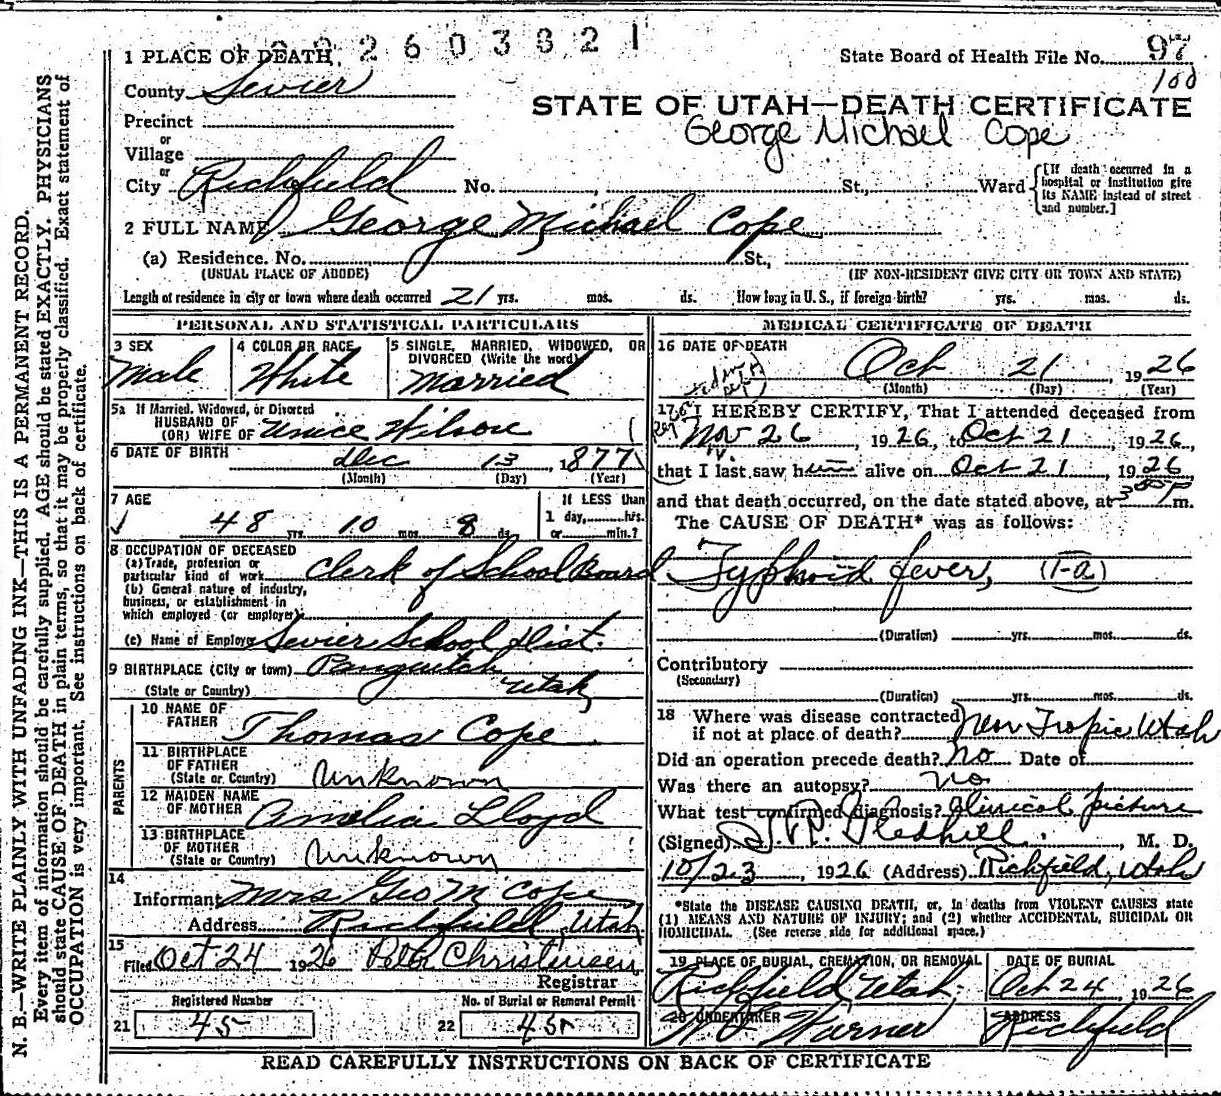 N. B.—WRITE PLAINLY WITH UNFADING INK—THIS IS A PERMANENT RECORD.
Every item of information should be carefully supplied. AGE should be stated EXACTLY. PHYSICIANS
should state CAUSE OF DEATH in plain terms, so that it may be properly classified. Exact statement of
OCCUPATION is very important. See instructions on back of certificate.
2603821
1 PLACE OF DEATH
State Board of Health File No. 97
100
County Sevier
STATE OF UTAH—DEATH CERTIFICATE
George Michael Cope
Precinct
or
Village
or
City Richfield No. , St., Ward
[If death occurred in a
hospital or institution give
its NAME instead of street
and number.]
2 FULL NAME George Michael Cope
(a) Residence. No. St.,
(USUAL PLACE OF ABODE) (IF NON-RESIDENT GIVE CITY OR TOWN AND STATE)
Length of residence in city or town where death occurred 21 yrs. mos. ds. How long in U.S., if foreign birth? yrs. mos. ds.
PERSONAL AND STATISTICAL PARTICULARS
3 SEX Male
4 COLOR OR RACE White
5 SINGLE, MARRIED, WIDOWED, OR
DIVORCED (Write the word)
Married
5a If Married, Widowed, or Divorced
HUSBAND OF
(OR) WIFE OF Unice Wilson
6 DATE OF BIRTH Dec 13, 1877
(Month) (Day) (Year)
7 AGE
48 yrs. 10 mos. 8 ds.
If LESS than
1 day, hrs.
or min.?
8 OCCUPATION OF DECEASED
(a) Trade, profession or
particular kind of work Clerk of School Board
(b) General nature of industry,
business, or establishment in
which employed (or employer)
(c) Name of Employer Sevier School Dist.
9 BIRTHPLACE (City or town) Panguitch
(State or Country) Utah
PARENTS
10 NAME OF
FATHER Thomas Cope
11 BIRTHPLACE
OF FATHER
(State or Country) Unknown
12 MAIDEN NAME
OF MOTHER Amelia Lloyd
13 BIRTHPLACE
OF MOTHER
(State or Country) Unknown
14
Informant Mrs Geo M Cope
Address Richfield, Utah
15
Filed Oct 24 1926 Christensen
Registrar
Registered Number
21 45
No. of Burial or Removal Permit
22 45
MEDICAL CERTIFICATE OF DEATH
16 DATE OF DEATH
Oct 21, 1926
(Month) (Day) (Year)
17 I HEREBY CERTIFY, That I attended deceased from
Nov 26, 1926, to Oct 21, 1926,
that I last saw him alive on Oct 21, 1926
and that death occurred, on the date stated above, at m.
The CAUSE OF DEATH* was as follows:
Typhoid fever, (1-a)
(Duration) yrs. mos. ds.
Contributory
(Secondary)
(Duration) yrs. mos. ds.
18 Where was disease contracted
if not at place of death? Near Tropic Utah
Did an operation precede death? No Date of
Was there an autopsy? No
What test confirmed diagnosis? Clinical picture
(Signed) Gledhill, M. D.
10/23, 1926 (Address) Richfield, Utah
*State the DISEASE CAUSING DEATH, or, in deaths from VIOLENT CAUSES state
(1) MEANS AND NATURE OF INJURY; and (2) whether ACCIDENTAL, SUICIDAL OR
HOMICIDAL. (See reverse side for additional space.)
19 PLACE OF BURIAL, CREMATION, OR REMOVAL
Richfield Utah
DATE OF BURIAL
Oct 24, 1926
20 UNDERTAKER
Warner
ADDRESS
Richfield
READ CAREFULLY INSTRUCTIONS ON BACK OF CERTIFICATE